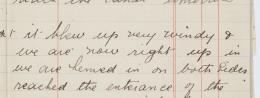 it blew up very windy &
we are now right up in
we are hemed in on both sides
reached the entrance of the